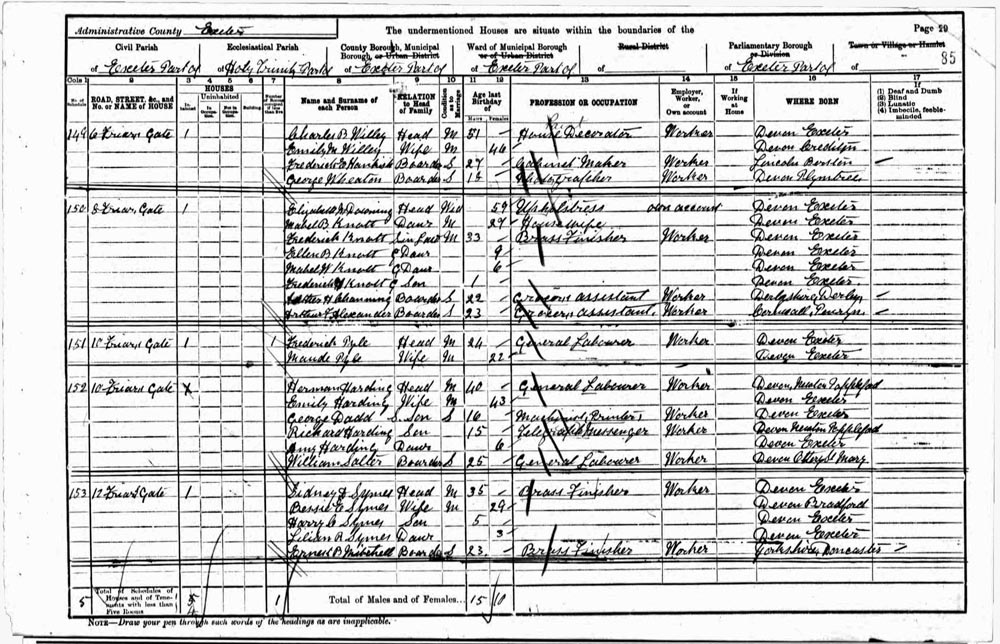 Administrative County Exeter The undermentioned Houses are situate within the boundaries of the Page 29
Civil Parish Ecclesiastical Parish County Borough, Municipal Borough, or Urban District Ward of Municipal Borough or of Urban District Rural District Parliamentary Borough or Division Town or Village or Hamlet
of Exeter Part of of Holy Trinity Part of of Exeter Part of of Exeter Part of of of Exeter Part of of 35
Cols 1 2 3 4 5 6 7 8 9 10 11 12 13 14 15 16 17
No. of Schedule ROAD, STREET, &c., and No. or NAME of HOUSE HOUSES Uninhabited Building Name and Surname of each Person RELATION to Head of Family Condition as to Marriage Age last Birthday of Males Females PROFESSION OR OCCUPATION Employer, Worker, or Own account If Working at Home WHERE BORN If (1) Deaf and Dumb (2) Blind (3) Lunatic (4) Imbecile, feeble-minded
149 6 Friars Gate 1 Charles B Willey Head M 51 House Decorator Worker Devon Exeter
Emily M Willey Wife M 46 Devon Crediton
Boarder S 27 Cabinet Maker Worker Lincoln Boston
George Wheaton Boarder S 15 Photographer Worker Devon
150 8 Friars Gate 1 Elizabeth Downing Head Wid 59 Upholstress own account Devon Exeter
Mabel B Knott Daur M 27 Housewife Devon Exeter
Frederick Knott S in Law M 33 Brass Finisher Worker Devon Exeter
Ellen B Knott G Daur 9 Devon Exeter
Mabel W Knott G Daur 6 Devon Exeter
Frederick Knott G Son 1 Devon Exeter
H Channing Boarder S 22 Grocers assistant Worker Derbyshire Derby
Arthur F Alexander Boarder S 23 Grocers assistant Worker Cornwall, Penryn
151 10 Friars Gate 1 1 Frederick Pyle Head M 24 General Labourer Worker Devon Exeter
Maude Pyle Wife M 22 Devon Exeter
152 10 Friars Gate X Herman Harding Head M 40 General Labourer Worker Devon, Newton Poppleford
Emily Harding Wife M 43 Devon Exeter
George Dadd S. Son S 16 Printers Worker Devon Exeter
Richard Harding Son 15 Telegraph Messenger Worker Devon Newton Poppleford
Amy Harding Daur 6 Devon Exeter
William Salter Boarder S 25 General Labourer Worker Devon Ottery St Mary
153 12 Friars Gate 1 Sidney J Symes Head M 35 Brass Finisher Worker Devon Exeter
Bessie E Symes Wife M 29 Devon Bradford
Harry C Symes Son 5 Devon Exeter
Lilian R Symes Daur 3 Devon Exeter
Ernest P Mitchell Boarder S 23 Brass Finisher Worker Yorkshire, Doncaster
5 Total of Schedules of Houses and of Tenements with less than Five Rooms 4 1 Total of Males and of Females... 15 10
NOTE—Draw your pen through such words of the headings as are inapplicable.